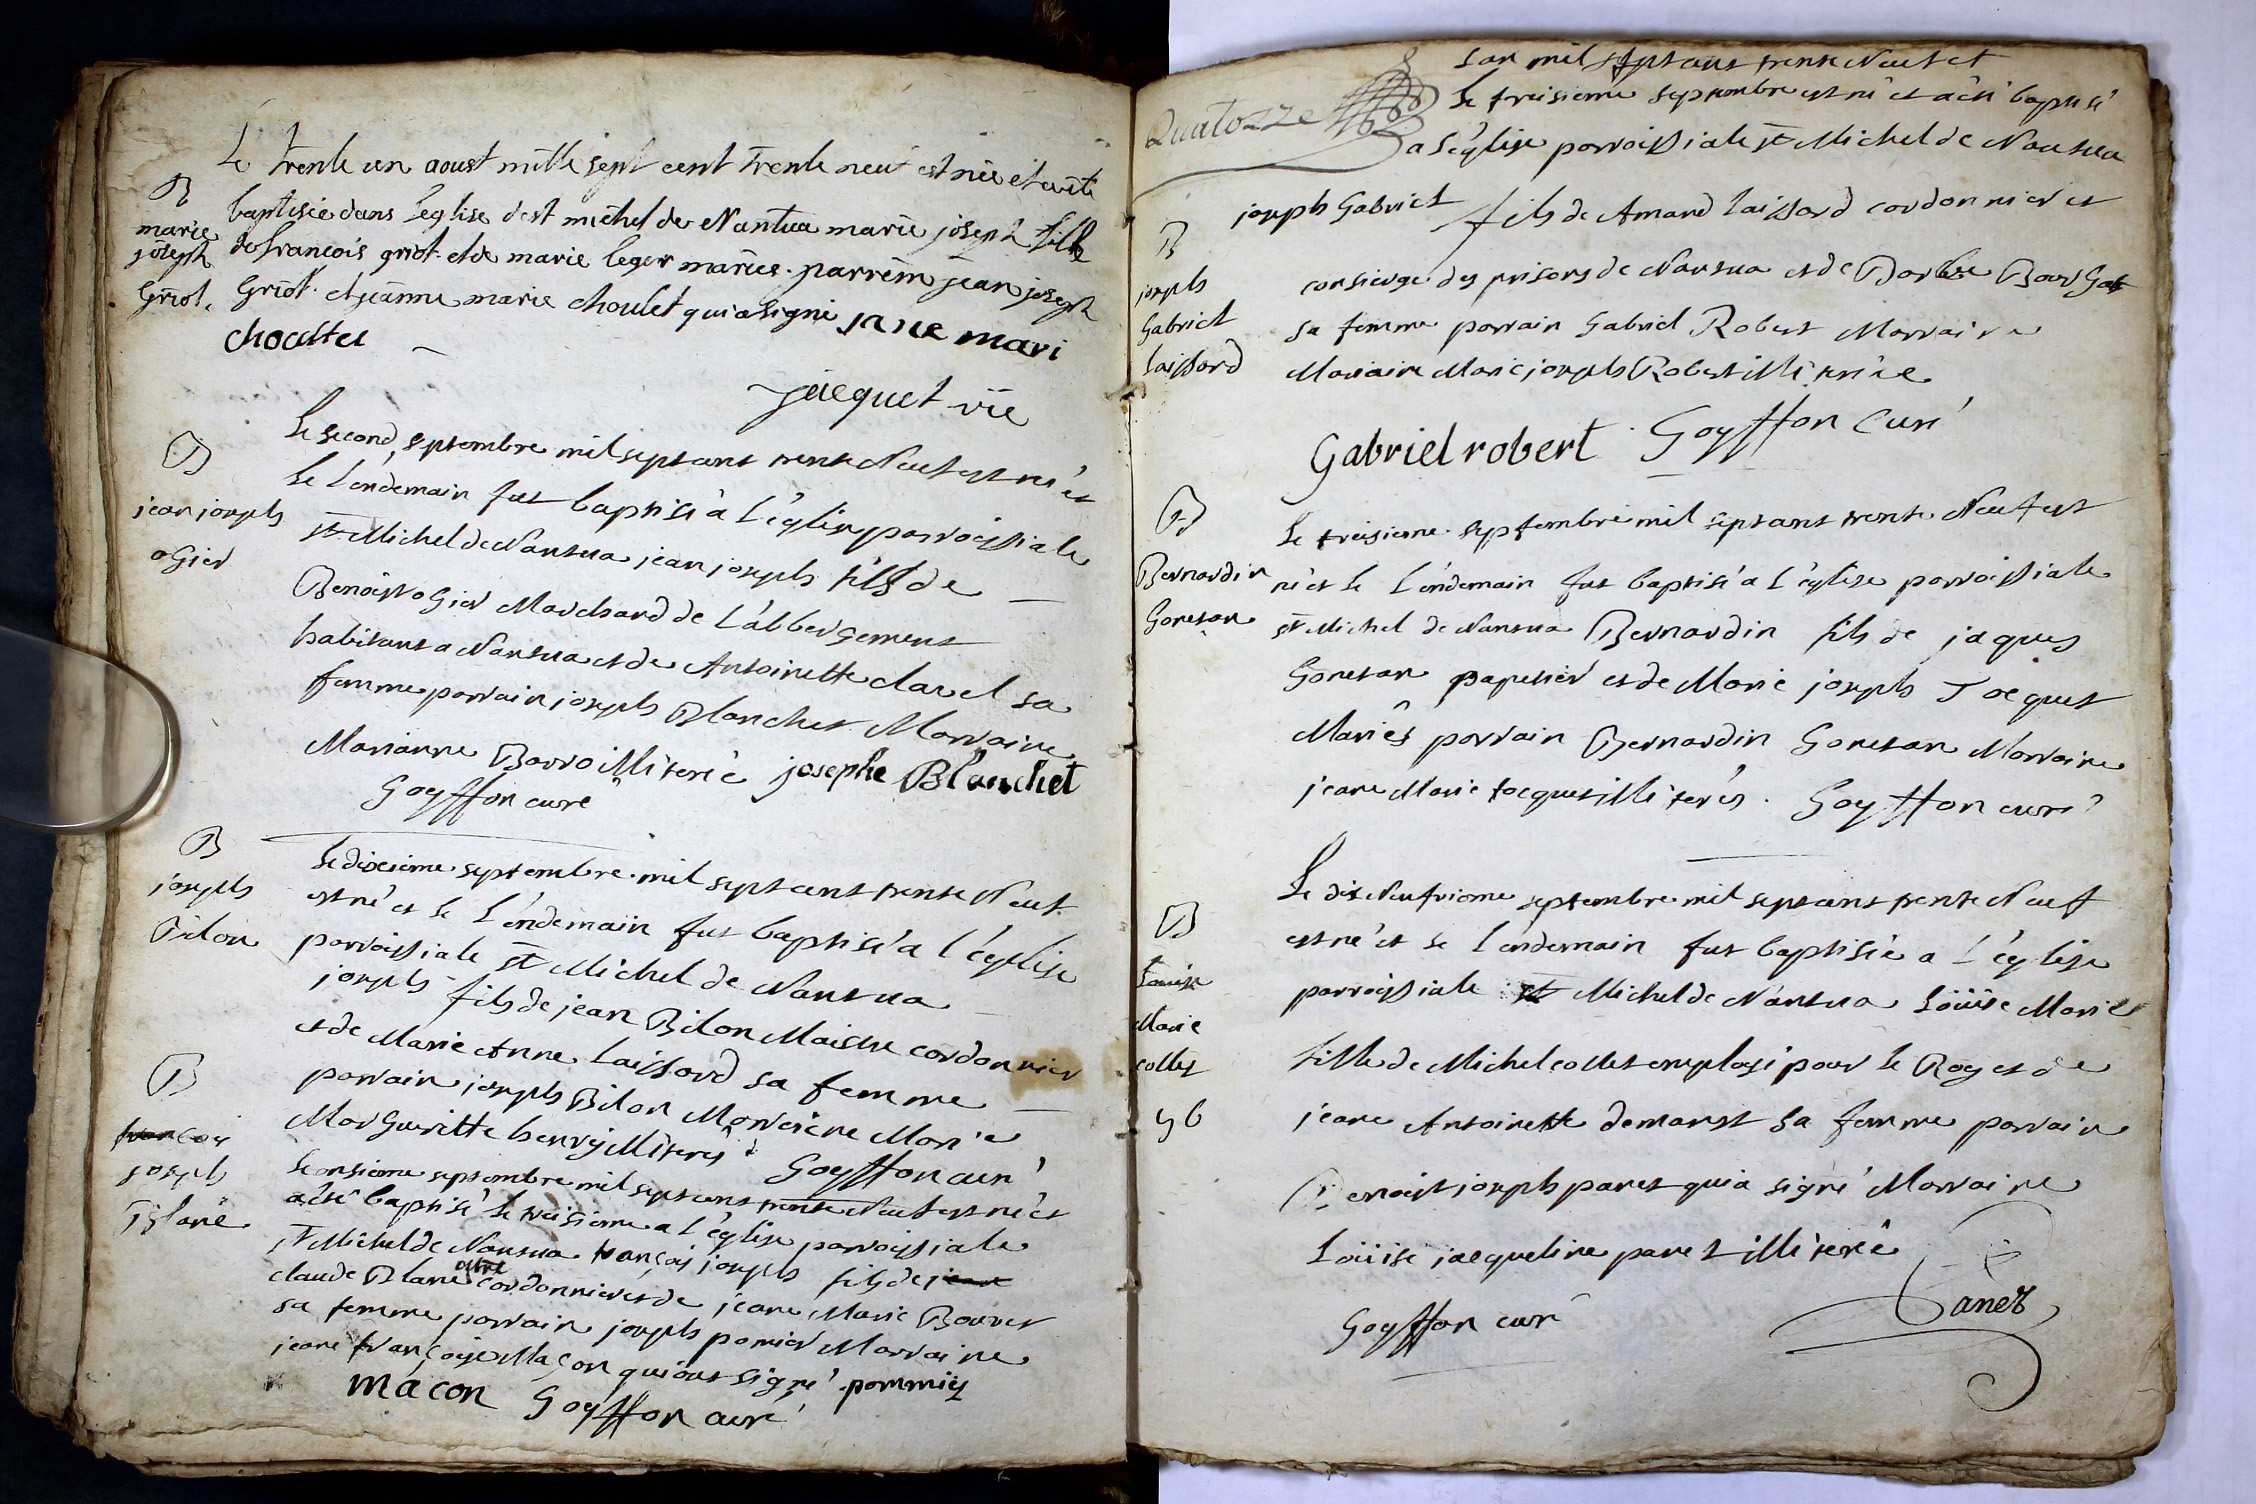 Le trente un aoust mille sept cent trente neuf est née et a été
B
marie
joseph
Griot.
baptisée dans l'eglise de st michel de Nantua marie joseph fille
de françois griot. et de marie leger mariés. parrein jean joseph
Griot. et jeanne marie choulet qui a signé jane mari
choultel
jacquet vic
B
jean joseph
ogier
Le second septembre mil sept cent trente Neuf est né et
Le l'endemain fut baptisé à L'église parroissiale
st Michel de Nantua jean joseph fils de
Benoist ogier Marchand de L'abbergement
habitant a Nantua et de Antoinette clavel sa
femme parrain joseph Blanchet Marraine
Marianne Barro illiteré josephe Blanchet
Goyffon curé
B
joseph
Bilon
Le dixieme septembre mil sept cent trente Neuf
est né et le l'endemain fut baptisé a l'église
parroissiale st Michel de Nantua
joseph fils de jean Bilon Maistre cordonnier
et de Marie Anne Laissard sa femme
parrain joseph Bilon Marraine Marie
Margueritte henry illiterés Goyffon curé
B
françois
joseph
Blanc
Le onsieme septembre mil sept cent trente Neuf est né et
a été baptisé le treisieme a L'église parroissiale
st Michel de Nantua françois joseph fils de jeane
claude Blanc cordonnier et de jeane Marie Bouvet
sa femme parrain joseph pomier Marraine
jeane françoise Maçon qui ont signé pommiez
macon Goyffon curé
Quatorze
L'an mil sept cent trente Neuf et
Le treisieme septembre est né et a été baptisé
a L'église parroissiale st Michel de Nantua
B
joseph
Gabriel
Laissard
joseph Gabriel fils de Amand Laissard cordonnier et
consierge des prisons de Nantua et de Barbe
sa femme parrain Gabriel Robert Marraine
Marraine Marie joseph Robert illiterée
Gabriel robert Goyffon Curé
B
Bernardin
Goneran
Le treisieme septembre mil sept cent trente Neuf est
né et le l'endemain fut baptisé a L'église parroissiale
st Michel de Nantua Bernardin fils de jaques
Goneran papetier et de Marie joseph Jocquet
Mariés parrain Bernardin Goneran Marraine
jeane Marie Jocquet illiterés. Goyffon curé
B
Louise
Marie
collet
Le dix Neufvieme septembre mil sept cent trente Neuf
est né et le l'endemain fut baptisée a L'église
parroissiale st Michel de Nantua Loüise Marie
fille de Michel collet employé pour le Roy et de
jeane Antoinette demarest sa femme parrain
Benoist joseph panet qui a signé Marraine
Loüise jacqueline panet illiterée
Panet
Goyffon curé